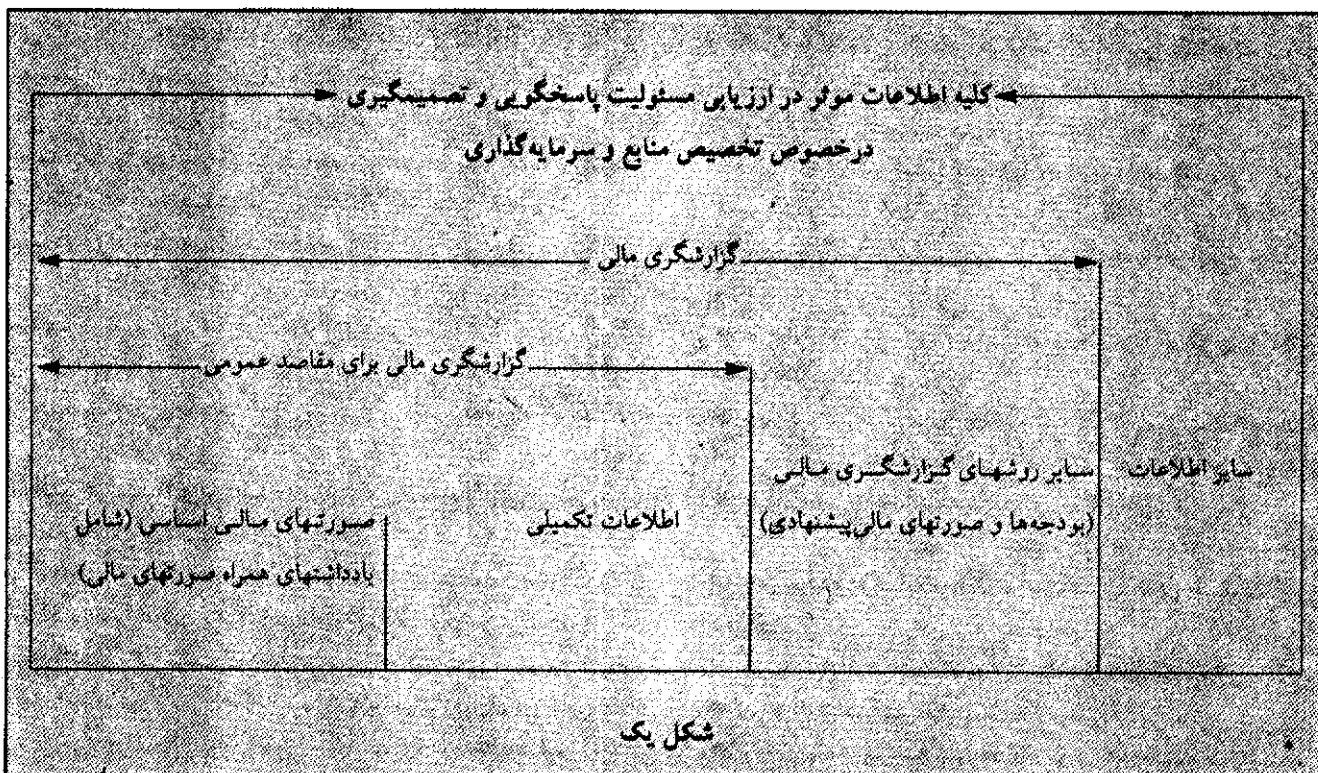 کلیه اطلاعات موثر در ارزیابی مسئولیت پاسخگویی و تصمیمگیری
درخصوص تخصیص منابع و سرمایه‌گذاری
گزارشگری مالی
گزارشگری مالی برای مقاصد عمومی
سایر اطلاعات
سایر روشهای گزارشگری مالی
(بودجه‌ها و صورتهای مالی پیشنهادی)
اطلاعات تکمیلی
صورتهای مالی اساسی (شامل
یادداشتهای همراه صورتهای مالی)
شکل یک